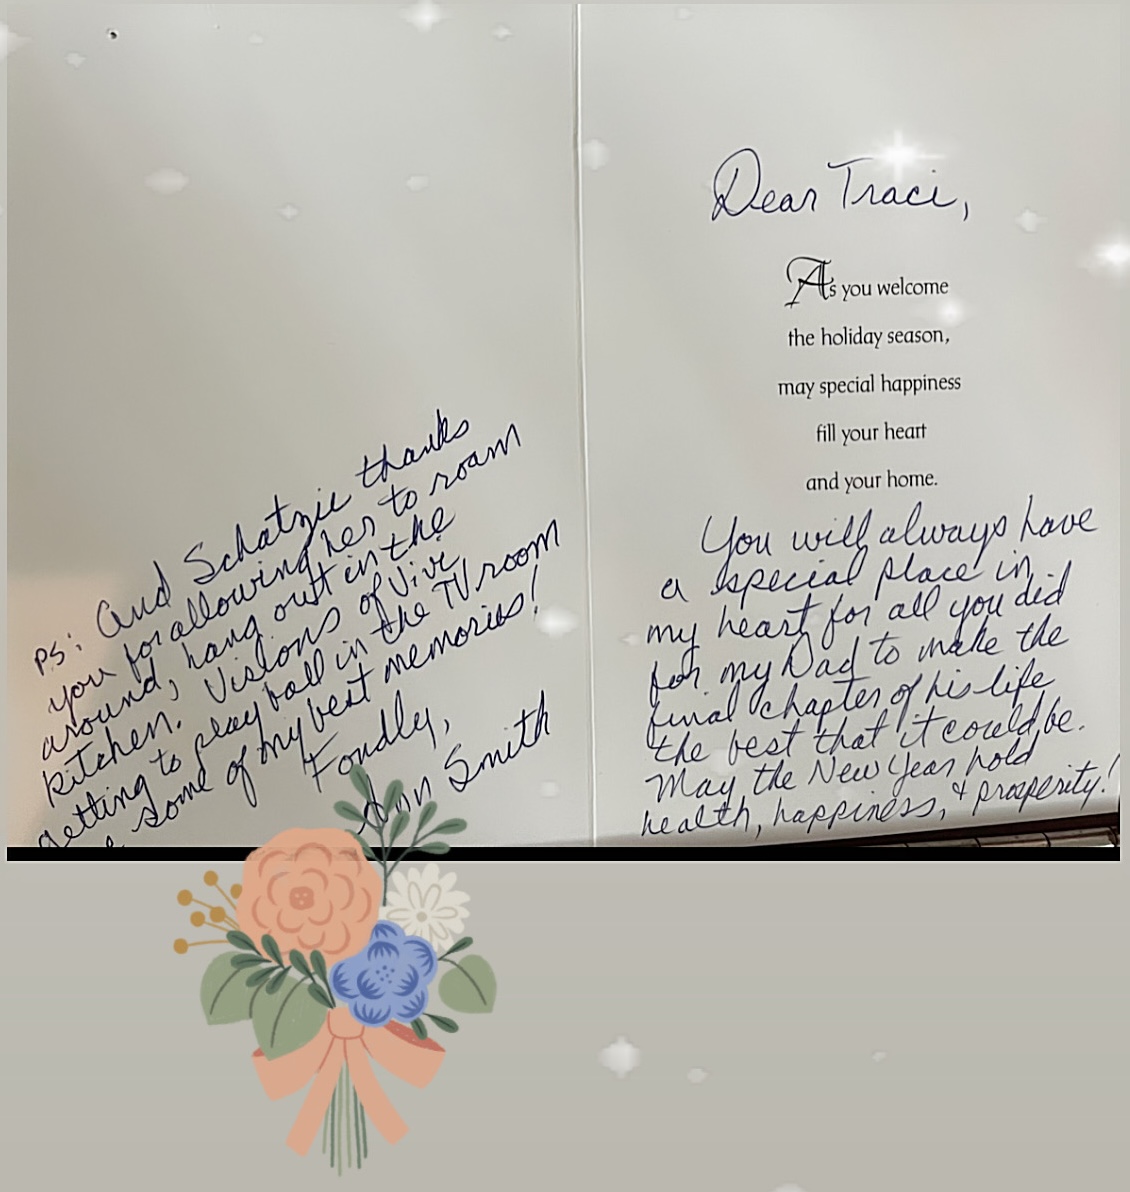 Dear Traci,
As you welcome
the holiday season,
may special happiness
fill your heart
and your home.
You will always have
a special place in
my heart for all you did
for my Dad to make the
final chapter of his life
the best that it could be.
May the New Year hold
health, happiness, & prosperity!
PS: And Schatzie thanks
you for allowing her to roam
around, hang out in the
kitchen. Visions of
getting to play ball in the TV room
some of my best memories!
Fondly,
Ann Smith